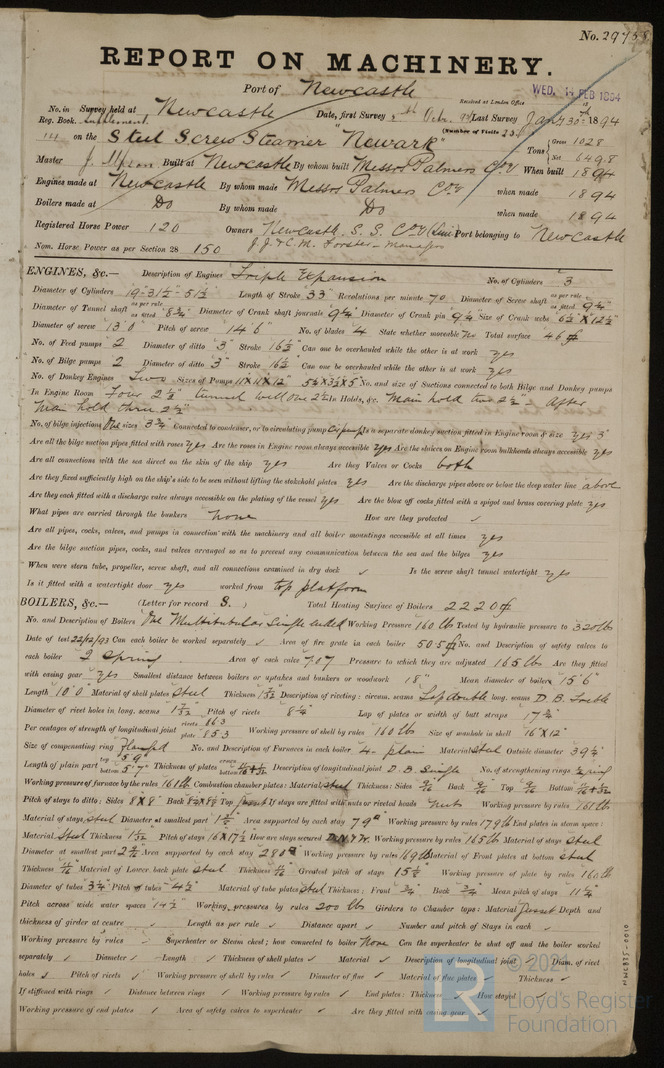 No. 29758
REPORT ON MACHINERY.
Port of Newcastle
Received at London Office WED. 14 FEB 1894
No. in Survey held at Newcastle Date, first Survey 5th Octr. 93 Last Survey Jany 30th 1894
Reg. Book. Supplement. (Number of Visits 23)
on the Steel Screw Steamer "Newark" Tons Gross 1028 Net 649.8
Master J. Built at Newcastle By whom built Messrs Palmers Coy When built 1894
Engines made at Newcastle By whom made Messrs Palmers Coy when made 1894
Boilers made at Do By whom made Do when made 1894
Registered Horse Power 120 Owners Newcastle S. S. Coy (Lim) Port belonging to Newcastle
Nom. Horse Power as per Section 28 150 J. J. & C. M. Forster - Managers
ENGINES, &c.— Description of Engines Triple Expansion No. of Cylinders 3
Diameter of Cylinders 19"-31½-51½ Length of Stroke 33" Revolutions per minute 70 Diameter of Screw shaft as per rule as fitted 9¾"
Diameter of Tunnel shaft as per rule as fitted 8¾" Diameter of Crank shaft journals 9¼" Diameter of Crank pin 9¼" Size of Crank webs 6½" X 12½"
Diameter of screw 13' 0" Pitch of screw 14' 6" No. of blades 4 State whether moveable No Total surface 46 ft
No. of Feed pumps 2 Diameter of ditto 3" Stroke 16½" Can one be overhauled while the other is at work yes
No. of Bilge pumps 2 Diameter of ditto 3" Stroke 16½" Can one be overhauled while the other is at work yes
No. of Donkey Engines Two Sizes of Pumps 11"X11"X12" 5¼"X3½"X5" No. and size of Suctions connected to both Bilge and Donkey pumps
In Engine Room Four 2½" tunnel well one 2½" In Holds, &c. Main hold two 2½" After
Main hold three 2½"
No. of bilge injections One sizes 3¾" Connected to condenser, or to circulating pump Cir pump Is a separate donkey suction fitted in Engine room & size yes 3"
Are all the bilge suction pipes fitted with roses yes Are the roses in Engine room always accessible yes Are the sluices on Engine room bulkheads always accessible yes
Are all connections with the sea direct on the skin of the ship yes Are they Valves or Cocks both
Are they fixed sufficiently high on the ship's side to be seen without lifting the stokehold plates yes Are the discharge pipes above or below the deep water line above
Are they each fitted with a discharge valve always accessible on the plating of the vessel yes Are the blow off cocks fitted with a spigot and brass covering plate yes
What pipes are carried through the bunkers none How are they protected ✓
Are all pipes, cocks, valves, and pumps in connection with the machinery and all boiler mountings accessible at all times yes
Are the bilge suction pipes, cocks, and valves arranged so as to prevent any communication between the sea and the bilges yes
When were stern tube, propeller, screw shaft, and all connections examined in dry dock ✓ Is the screw shaft tunnel watertight yes
Is it fitted with a watertight door yes worked from top platform
BOILERS, &c.— (Letter for record S.) Total Heating Surface of Boilers 2220 ft
No. and Description of Boilers One Multitubular Single ended Working Pressure 160 lb Tested by hydraulic pressure to 320 lb
Date of test 22/12/93 Can each boiler be worked separately ✓ Area of fire grate in each boiler 50.5 ft No. and Description of safety valves to
each boiler 2 Spring Area of each valve 7.07 Pressure to which they are adjusted 165 lb Are they fitted
with easing gear yes Smallest distance between boilers or uptakes and bunkers or woodwork 18" Mean diameter of boilers 15' 6"
Length 10' 0" Material of shell plates Steel Thickness 1 5/32" Description of riveting: circum. seams Lap double long. seams D. B. Treble
Diameter of rivet holes in long. seams Pitch of rivets 8¼" Lap of plates or width of butt straps 17¾"
Per centages of strength of longitudinal joint rivets 86.3 plate 85.3 Working pressure of shell by rules 160 lb Size of manhole in shell 16" X 12"
Size of compensating ring Flanged No. and Description of Furnaces in each boiler 4 - plain Material Steel Outside diameter 39¼"
Length of plain part top 5' 9" bottom 5' 7" Thickness of plates crown bottom Description of longitudinal joint D. B. Single No. of strengthening rings
Working pressure of furnace by the rules 161 lb Combustion chamber plates: Material Steel Thickness: Sides Back Top Bottom
Pitch of stays to ditto: Sides 8"X8" Back Top If stays are fitted with nuts or riveted heads nuts Working pressure by rules 161 lb
Material of stays Steel Diameter at smallest part Area supported by each stay 79 Working pressure by rules 179 lb End plates in steam space:
Material Steel Thickness 1 5/32 Pitch of stays 16"X17½" How are stays secured D.N.&W. Working pressure by rules 165 lb Material of stays Steel
Diameter at smallest part Area supported by each stay 280 Working pressure by rules 169 lb Material of Front plates at bottom Steel
Thickness Material of Lower back plate Steel Thickness Greatest pitch of stays 15½" Working pressure of plate by rules 160 lb
Diameter of tubes 3¼" Pitch of tubes 4½" Material of tube plates Steel Thickness: Front ¾" Back ¾" Mean pitch of stays 11¼"
Pitch across wide water spaces 14½" Working pressures by rules 200 lb Girders to Chamber tops: Material Gusset Depth and
thickness of girder at centre ✓ Length as per rule ✓ Distance apart ✓ Number and pitch of Stays in each ✓
Working pressure by rules ✓ Superheater or Steam chest; how connected to boiler None Can the superheater be shut off and the boiler worked
separately ✓ Diameter ✓ Length ✓ Thickness of shell plates ✓ Material ✓ Description of longitudinal joint ✓ Diam. of rivet
holes ✓ Pitch of rivets ✓ Working pressure of shell by rules ✓ Diameter of flue ✓ Material of flue plates ✓ Thickness ✓
If stiffened with rings ✓ Distance between rings ✓ Working pressure by rules ✓ End plates: Thickness ✓ How stayed ✓
Working pressure of end plates ✓ Area of safety valves to superheater ✓ Are they fitted with easing gear ✓
© 2021
LR
Lloyd's Register
Foundation